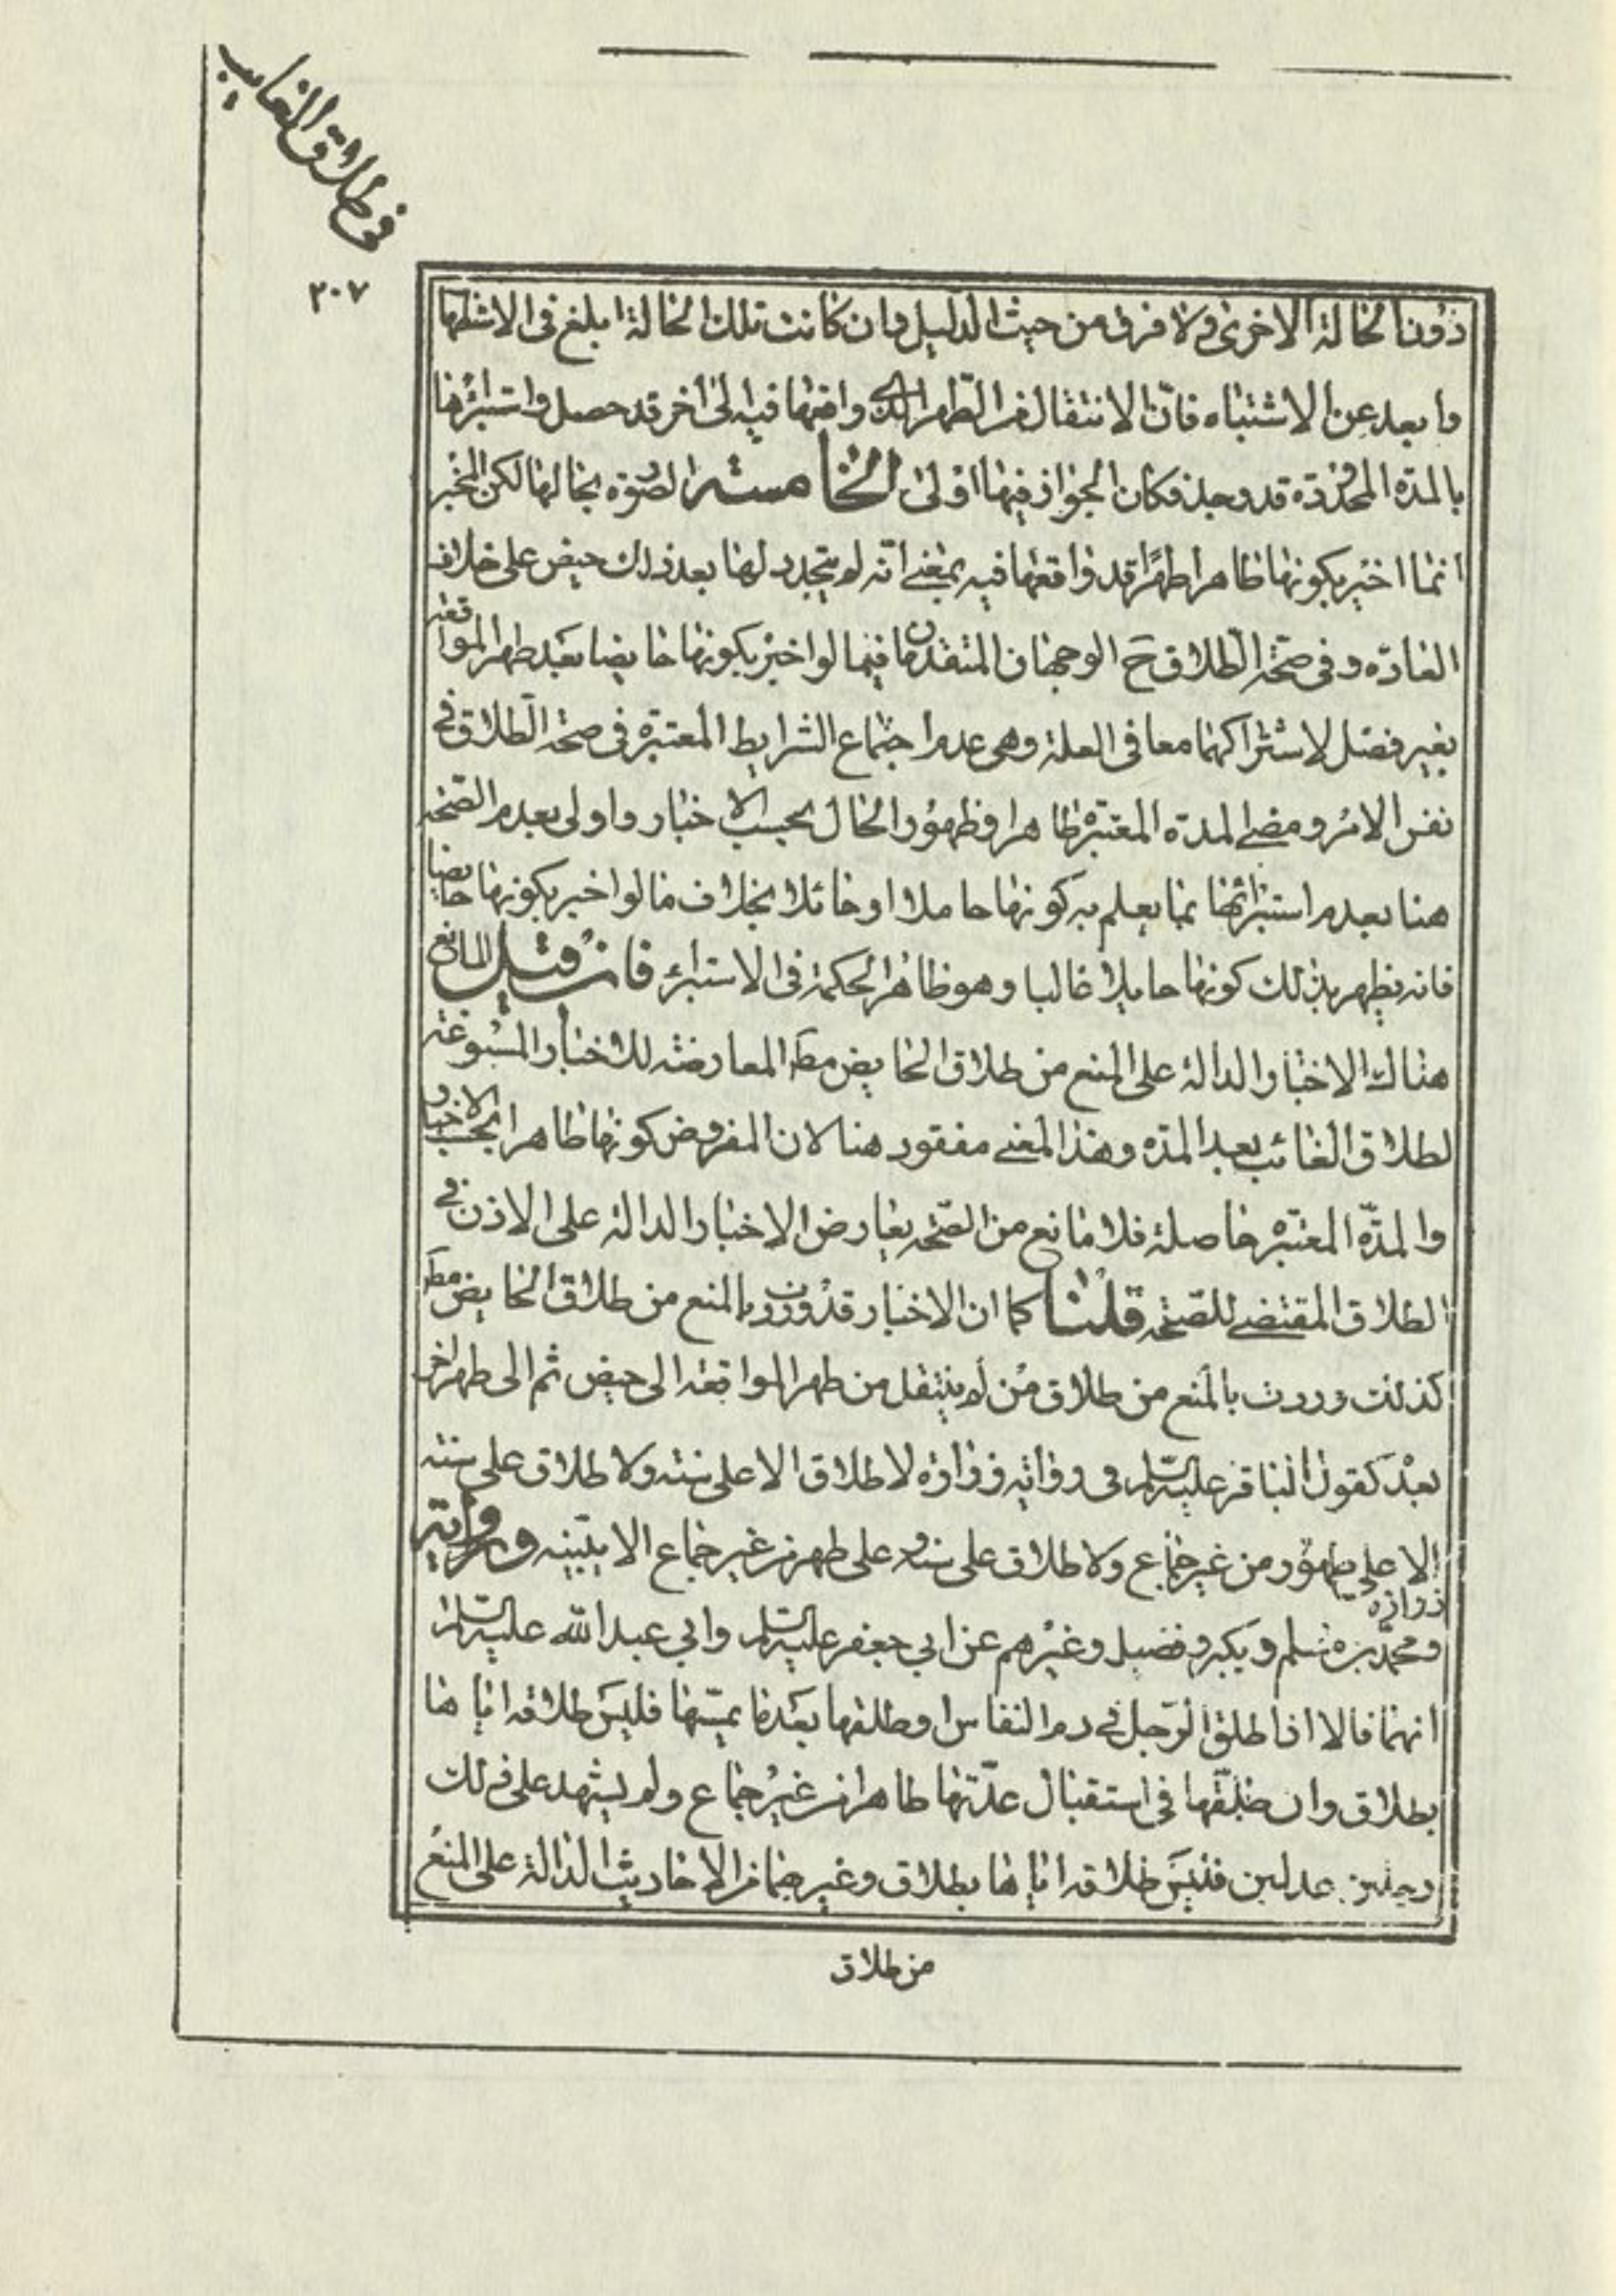 في طلاق الغايب
٣٠٧
دون الحالة الاخرى ولا فرق من حيث الدليل وان كانت تلك الحالة ابلغ في الاستظهار
وابعد عن الاشتباه فانّ الانتقال من الطهر الذى واقعها فيه الى اخر قد حصل واستبرائها
بالمدّة المحدودة قد وجد فكان الجواز فيها اولى الخامسة الصورة بحالها لكن المخبر
انما اخبر بكونها طاهرا طهرًا قد واقعها فيه بمعنى انّه لم يتجدد لها بعد ذلك حيض على خلاف
العادة وفى صحّة الطلاق ح الوجهان المتقدمان فيما لو اخبر بكونها حايضا بعد طهر المواقعة
بغير فصل لاشتراكهما معا فى العلة وهى عدم اجتماع الشرايط المعتبرة فى صحة الطلاق فى
نفس الامر ومضى المدة المعتبرة ظاهرا وظهور الحال بحسب الاخبار واولى بعدم الصّحة
هنا بعدم استبرائها بما يعلم به كونها حاملا او حائلا بخلاف ما لو اخبر بكونها حايضا
فانه يظهر بذلك كونها حايلا غالبا وهو ظاهر الحكمة فى الاستبراء فان قيل المانع
هناك الاخبار الدالة على المنع من طلاق الحايض مط المعارضة للاخبار المسوغة
لطلاق الغائب بعد المدّه وهذا المعنى مفقود هنا لان المفروض كونها طاهرا بحسب الاخبار
والمدّة المعتبرة حاصلة فلا مانع من الصّحة يعارض الاخبار الدالة على الاذن فى
الطلاق المقتضى للصّحة قلنا كما ان الاخبار قد وردت بالمنع من طلاق الحايض مط
كذلك وردت بالمنع من طلاق من لم ينتقل من طهر المواقعة الى حيض ثم الى طهر اخر
بعد كقول الباقر عليه السلم فى رواية زرارة لا طلاق الا على سنه ولا طلاق على سنه
الا على طهور من غير جماع ولا طلاق على سنه وعلى طهر من غير جماع الا ببيّنه ورواية
زرارة
ومحمّد بن مسلم وبكير وفضيل وغيرهم عن ابي جعفر عليه السلم وابي عبد الله عليه السلم
انهما قالا اذا طلق الرّجل في دم النفاس او طلقها بعد ما يمسّها فليس طلاقه اياها
بطلاق وان طلّقها في استقبال عدّتها طاهرا من غير جماع ولم يشهد على ذلك
رجلين عدلين فليس طلاقه اياها بطلاق وغيرهما من الاحاديث الدالة على المنع
من طلاق